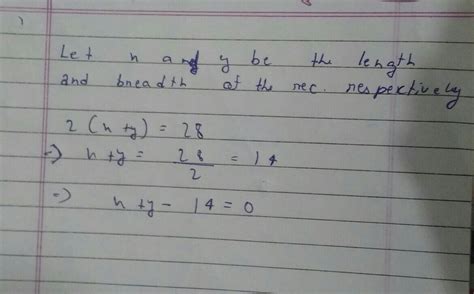 Let x and y be the length
and breadth of the rec. respectively
2 (x + y) = 28
=> x + y = 28/2 = 14
=> x + y - 14 = 0